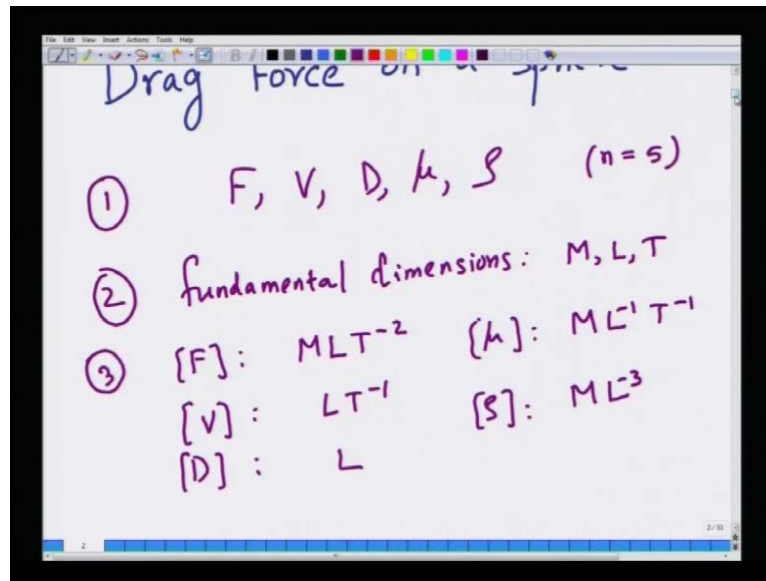 File Edit View Insert Actions Tools Help
Drag Force on a
① F, V, D, μ, ρ (n = 5)
② fundamental dimensions: M, L, T
③ [F]: MLT⁻² [μ]: ML⁻¹T⁻¹
[V]: LT⁻¹ [ρ]: ML⁻³
[D]: L
2/33
2